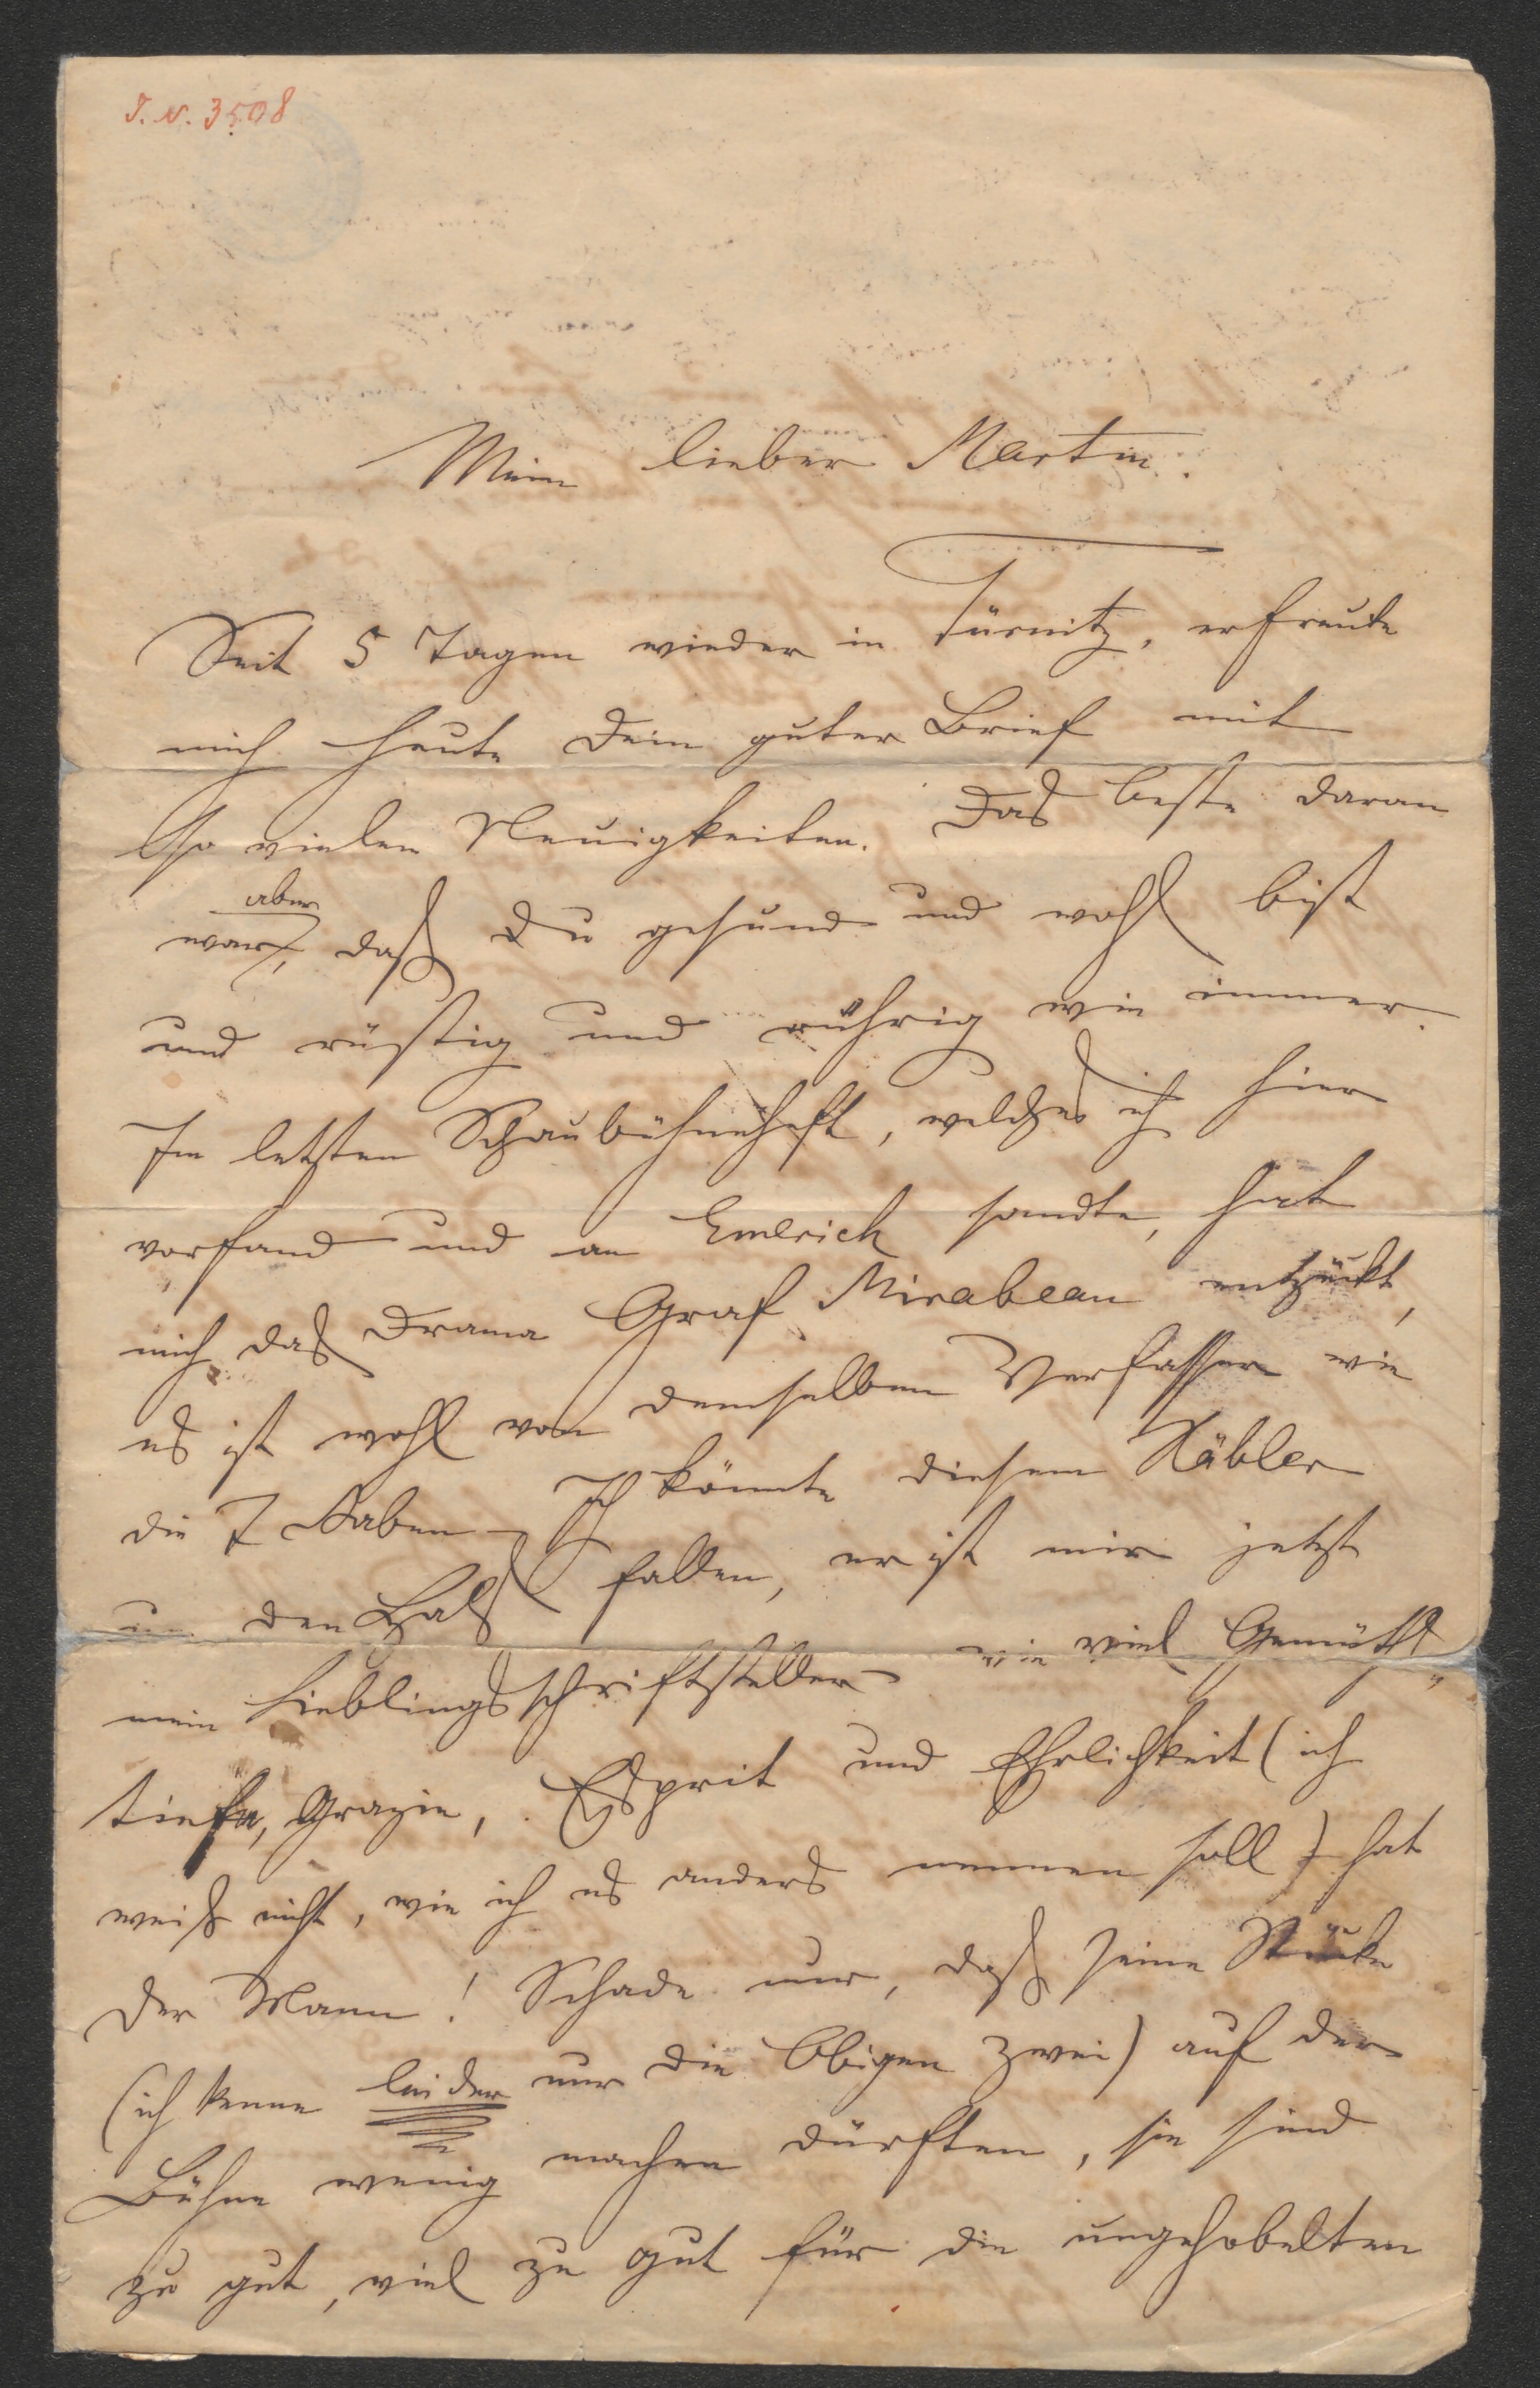 J. N. 3508
Mein lieber Martin.
Seit 5 Tagen wieder in Türnitz, erfreute
mich heute Dein guter Brief mit
so vielen Neuigkeiten. Das beste daran
aber
war, daß Du gesund und wohl bist
und rüstig und rührig wie immer.
Im letzten Schaubühneheft, welches ich hier
vorfand und an Emerich sandte, hat
mich das Drama Graf Mirabeau entzückt,
es ist wohl von demselben Verfasser wie
die 7 Raben – Ich könnte diesem Häbler
um den Hals fallen, er ist mir jetzt
mein Lieblingsschriftsteller wie viel Gemüths
tiefe, Grazie, Esprit und Ehrlichkeit (ich
weiß nicht, wie ich es anders nennen soll) hat
der Mann! Schade nur, daß seine Stücke
(ich kenne leider nur die Obigen zwei) auf der
Bühne wenig machen dürften, sie sind
zu gut, viel zu gut für die ungehobelten